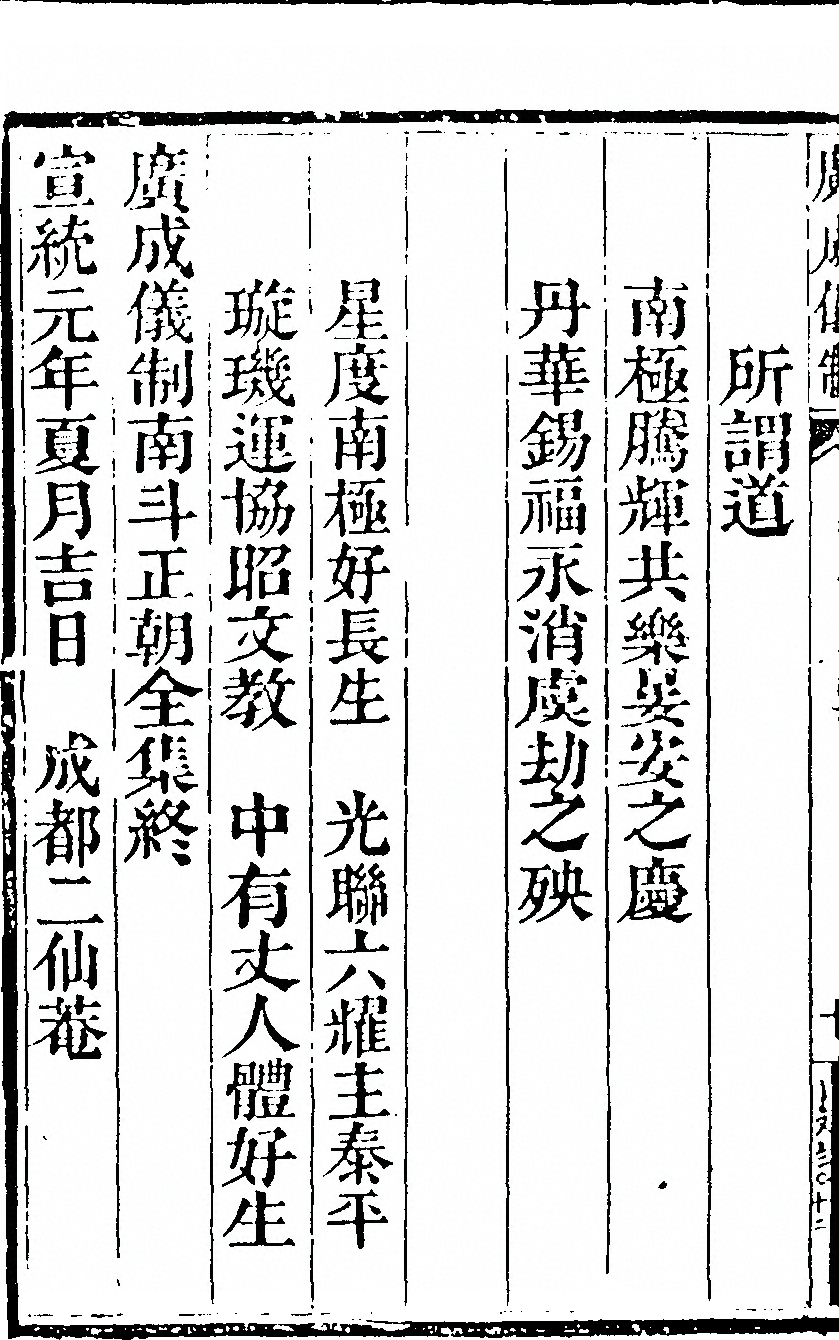 廣成儀制
所謂道
南極騰輝共樂晏安之慶
丹華錫福永消虔劫之殃
星度南極好長生　光聯六耀主泰平
璇璣運協昭文教　中有丈人體好生
廣成儀制南斗正朝全集終
宣統元年夏月吉日　成都二仙菴